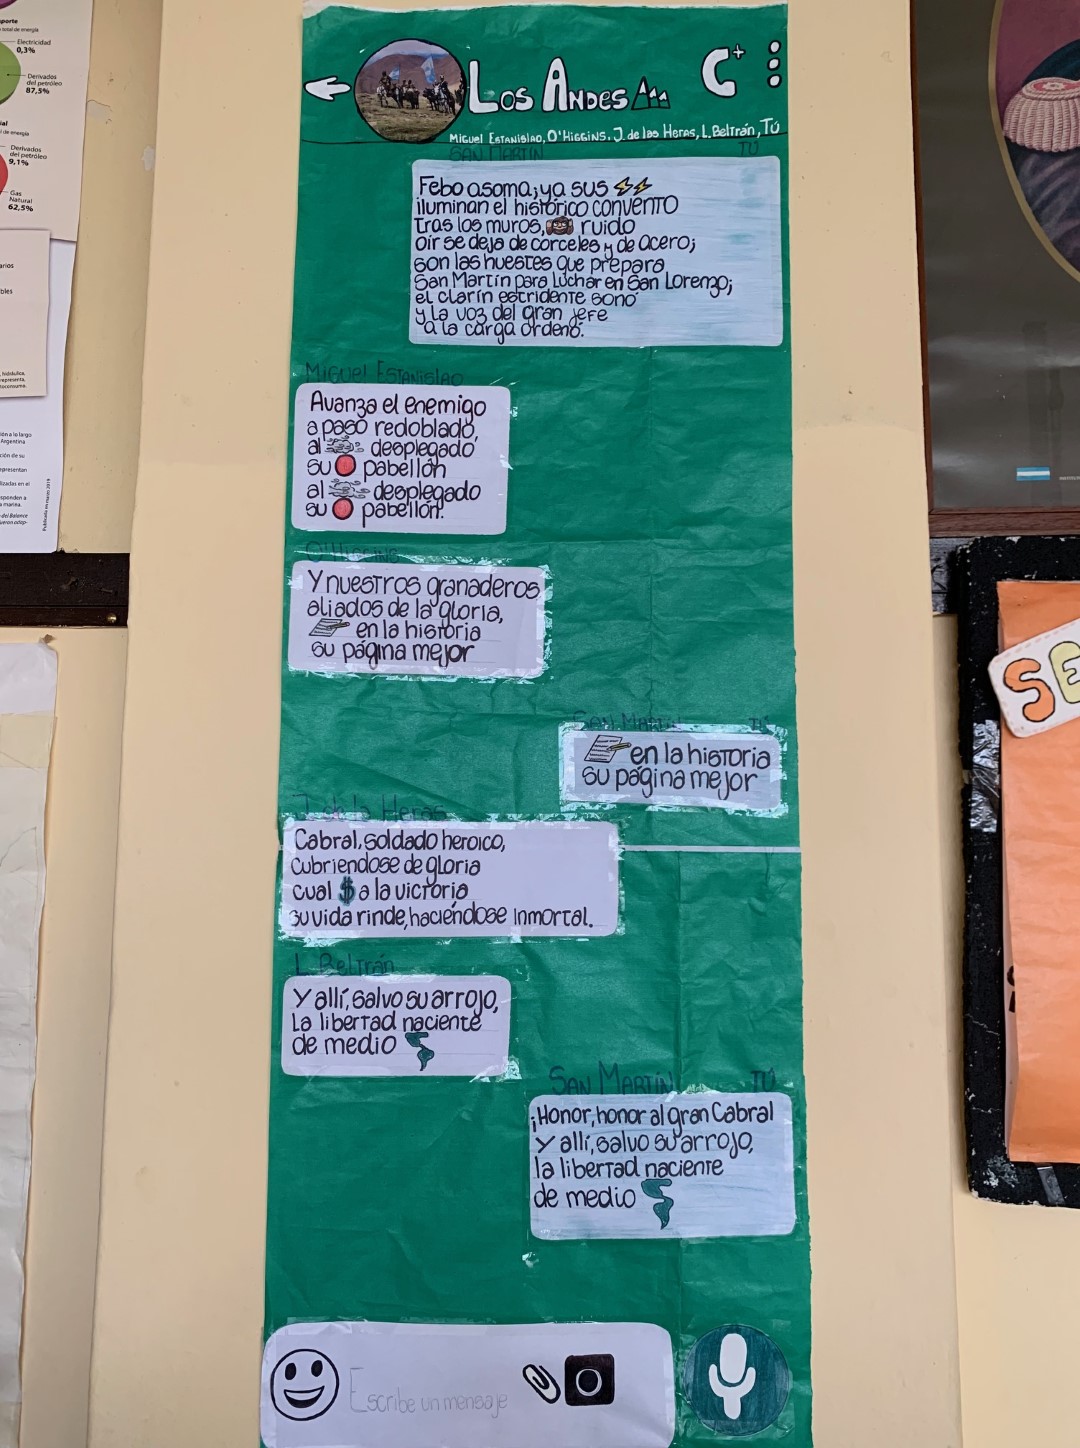 sporte
total de energía
Electricidad
0,3%
Derivados
del petróleo
87,5%
ial
l de energía
Derivados
del petróleo
9,1%
Gas
Natural
62,5%
Publicado en marzo 2019
Los Andes
C+
Miguel Estanislao, O'Higgins, J. de las Heras, L. Beltrán, Tú
San Martín Tú
Febo asoma; ya sus
iluminan el histórico convento
tras los muros, ruido
oir se deja de corceles y de acero;
son las huestes que prepara
San Martín para luchar en San Lorenzo;
el clarín estridente sonó
y la voz del gran jefe
a la carga ordenó.
Miguel Estanislao
Avanza el enemigo
a paso redoblado,
al desplegado
su pabellón
al desplegado
su pabellón.
O'Higgins
Y nuestros granaderos
aliados de la gloria,
en la historia
su página mejor
San Martín Tú
en la historia
su página mejor
J. de la Heras
Cabral, soldado heroico,
cubriendose de gloria
cual $ a la victoria
su vida rinde, haciéndose inmortal.
L. Beltrán
Y allí, salvo su arrojo,
La libertad naciente
de medio
San Martín Tú
¡Honor, honor al gran Cabral
Y allí, salvo su arrojo,
la libertad naciente
de medio
Escribe un mensaje
SE